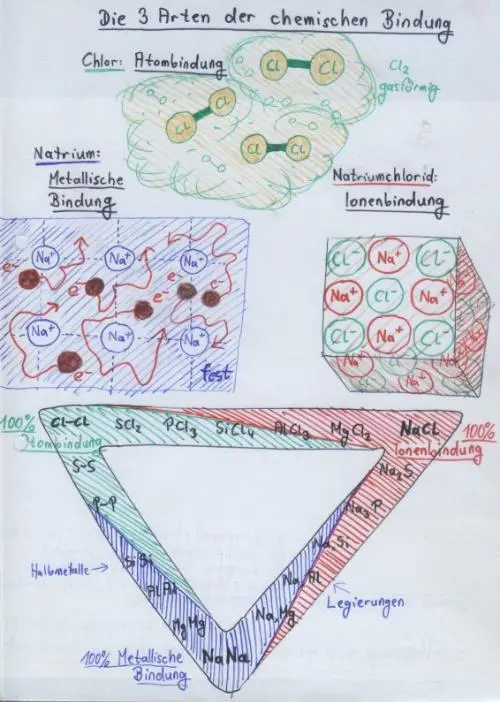 Die 3 Arten der chemischen Bindung
Chlor: Atombindung
Cl Cl
Cl₂
gasförmig
Cl Cl
Cl Cl
Natrium:
Metallische
Bindung
Natriumchlorid:
Ionenbindung
Na⁺ Na⁺ Na⁺
e⁻ e⁻ e⁻ e⁻
Na⁺ Na⁺ Na⁺
e⁻
fest
Cl⁻ Na⁺ Cl⁻
Na⁺ Cl⁻ Na⁺
Cl⁻ Na⁺ Cl⁻
Na⁺ Cl⁻ Na⁺
100% Atombindung
Cl-Cl SCl₂ PCl₃ SiCl₄ AlCl₃ MgCl₂ NaCl
100% Ionenbindung
S-S
Na₂S
P-P
Na₃P
Halbmetalle
SiSi
Na,Si
AlAl
Na Al
Legierungen
MgMg
Na,Mg
NaNa
100% Metallische
Bindung